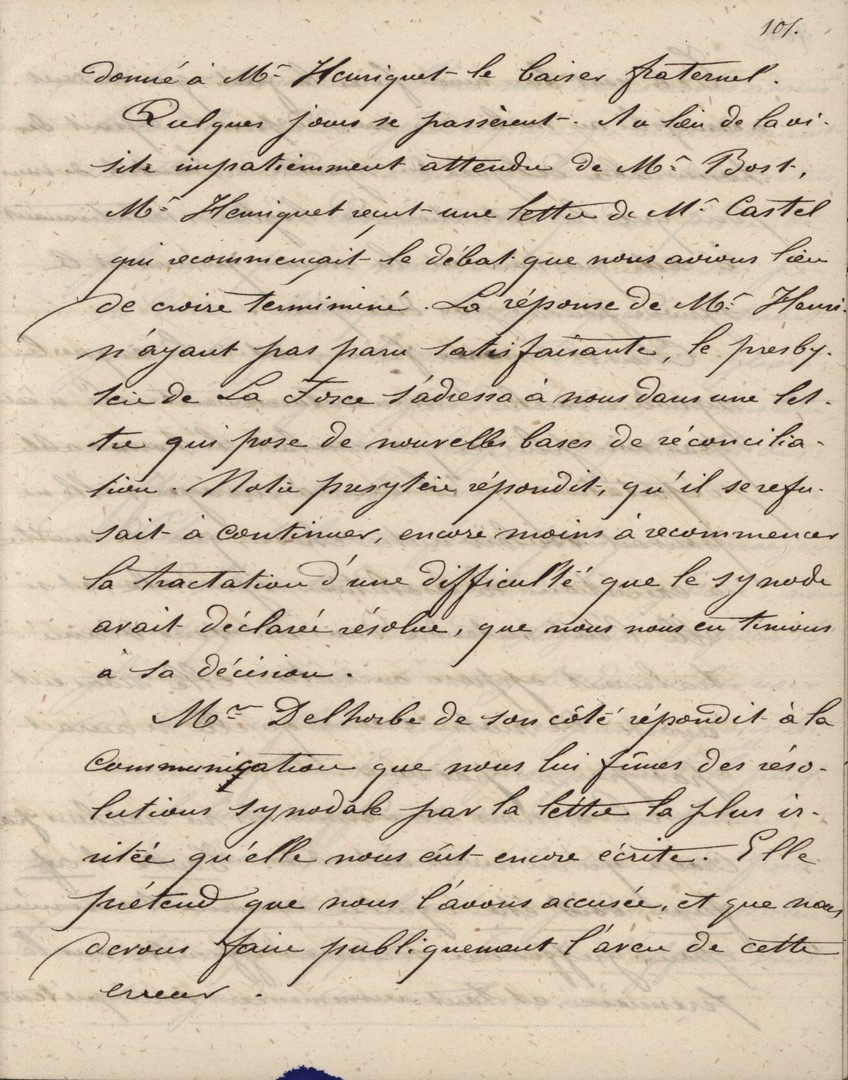 101.
donné à Mr Henriquet le baiser fraternel.
Quelques jours se passèrent. Au lieu de la vi-
site impatiemment attendue de Mr Bost,
Mr Henriquet reçut une lettre de Mr Castel
qui recommençait le débat que nous avions lieu
de croire termininé. La réponse de Mr Henri.
n'ayant pas paru satisfaisante, le presby-
tère de La Force s'adressa à nous dans une let-
tre qui pose de nouvelles bases de réconcilia-
tion. Notre presytère répondit, qu'il se refu-
sait à continuer, encore moins à recommencer
la tractation d'une difficulté que le synode
avait déclarée résolue, que nous nous en tenions
à sa décision.
Mme Delhorbe de son côté répondit à la
communication que nous lui fîmes des réso-
lutions synodale par la lettre la plus ir-
ritée qu'elle nous eût encore écrite. Elle
prétend que nous l'avons accusée, et que nous
devons faire publiquement l'aveu de cette
erreur.